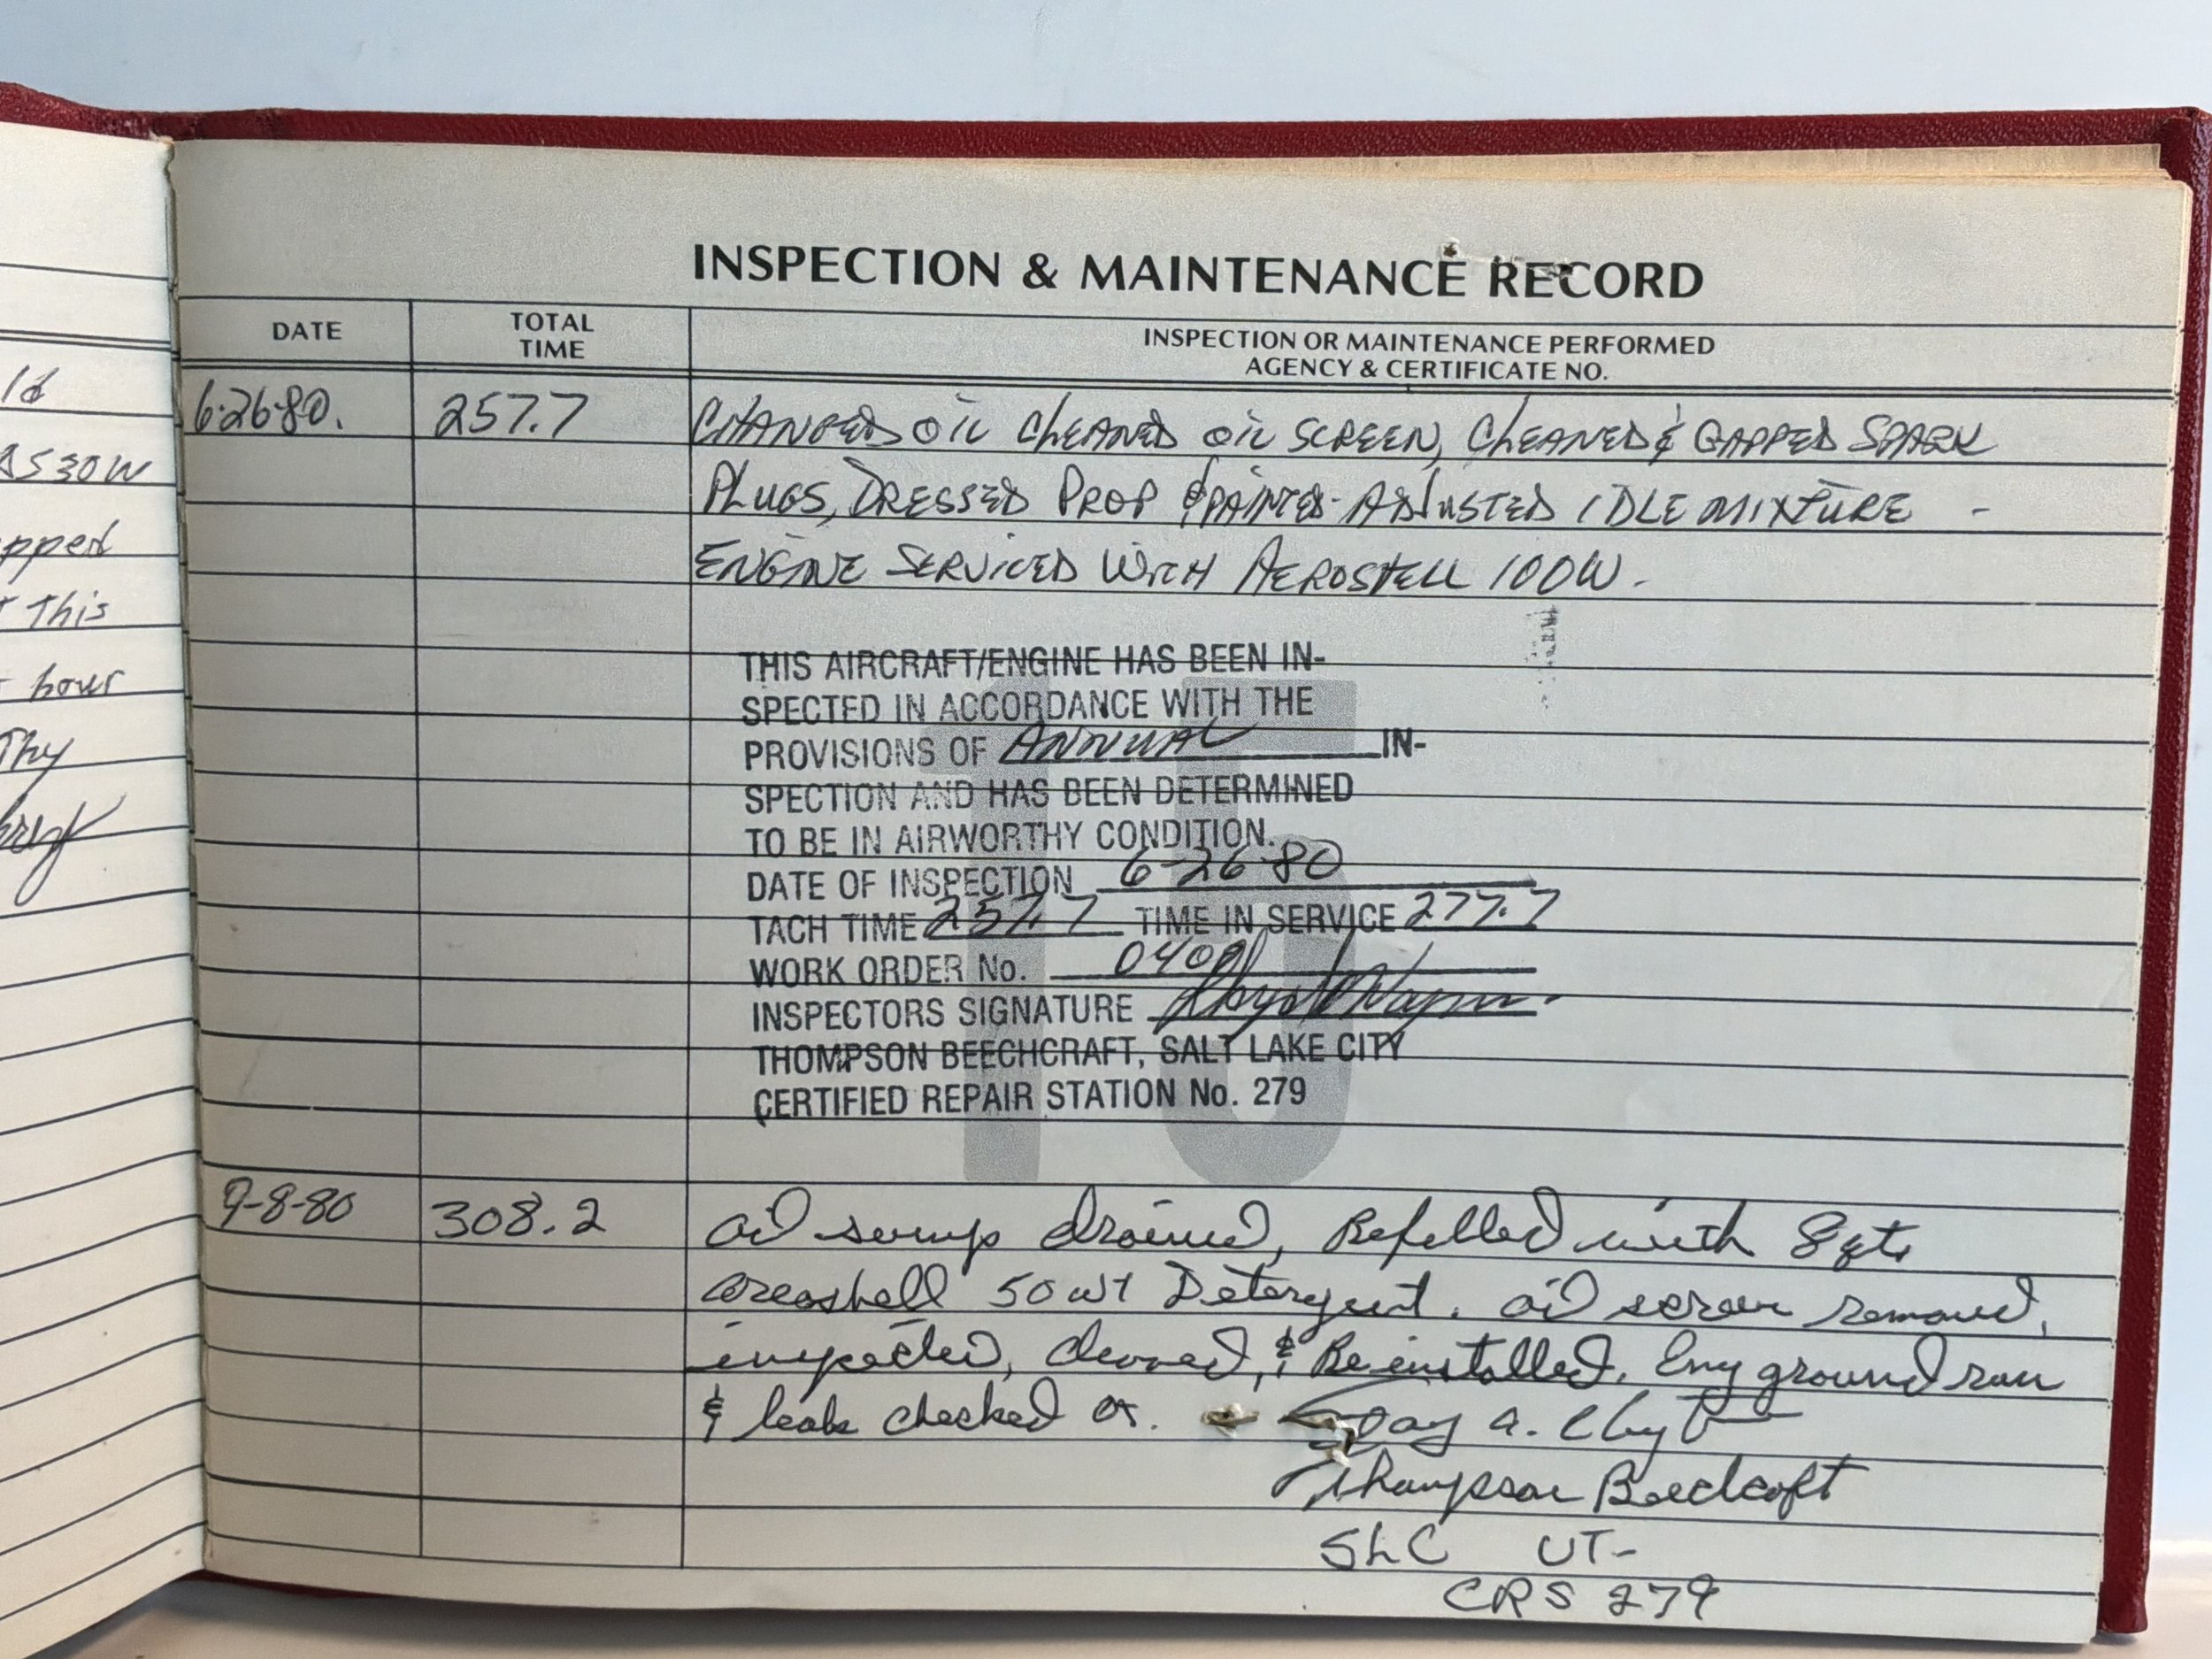 ld
AS30W
pped
This
hour
Thy
INSPECTION & MAINTENANCE RECORD
DATE
TOTAL
TIME
INSPECTION OR MAINTENANCE PERFORMED
AGENCY & CERTIFICATE NO.
6-26-80. 257.7 CHANGED OIL CLEANED OIL SCREEN, CLEANED & GAPPED SPARK
PLUGS, DRESSED PROP & PAINTED- ADJUSTED IDLE MIXTURE -
ENGINE SERVICED WITH AEROSHELL 100W.
THIS AIRCRAFT/ENGINE HAS BEEN IN-
SPECTED IN ACCORDANCE WITH THE
PROVISIONS OF ANNUAL IN-
SPECTION AND HAS BEEN DETERMINED
TO BE IN AIRWORTHY CONDITION.
DATE OF INSPECTION 6-26-80
TACH TIME 257.7 TIME IN SERVICE 277.7
WORK ORDER No.
INSPECTORS SIGNATURE
THOMPSON BEECHCRAFT, SALT LAKE CITY
CERTIFIED REPAIR STATION No. 279
15
9-8-80 308.2 oil sump drained, Refilled with 8 qts
areoshell 50 wt Detergent. oil screen removed,
inspected, cleaned, & Reinstalled. Eng ground run
& leak checked ok. Jay A.
Thompson Beechcraft
SLC UT-
CRS 279